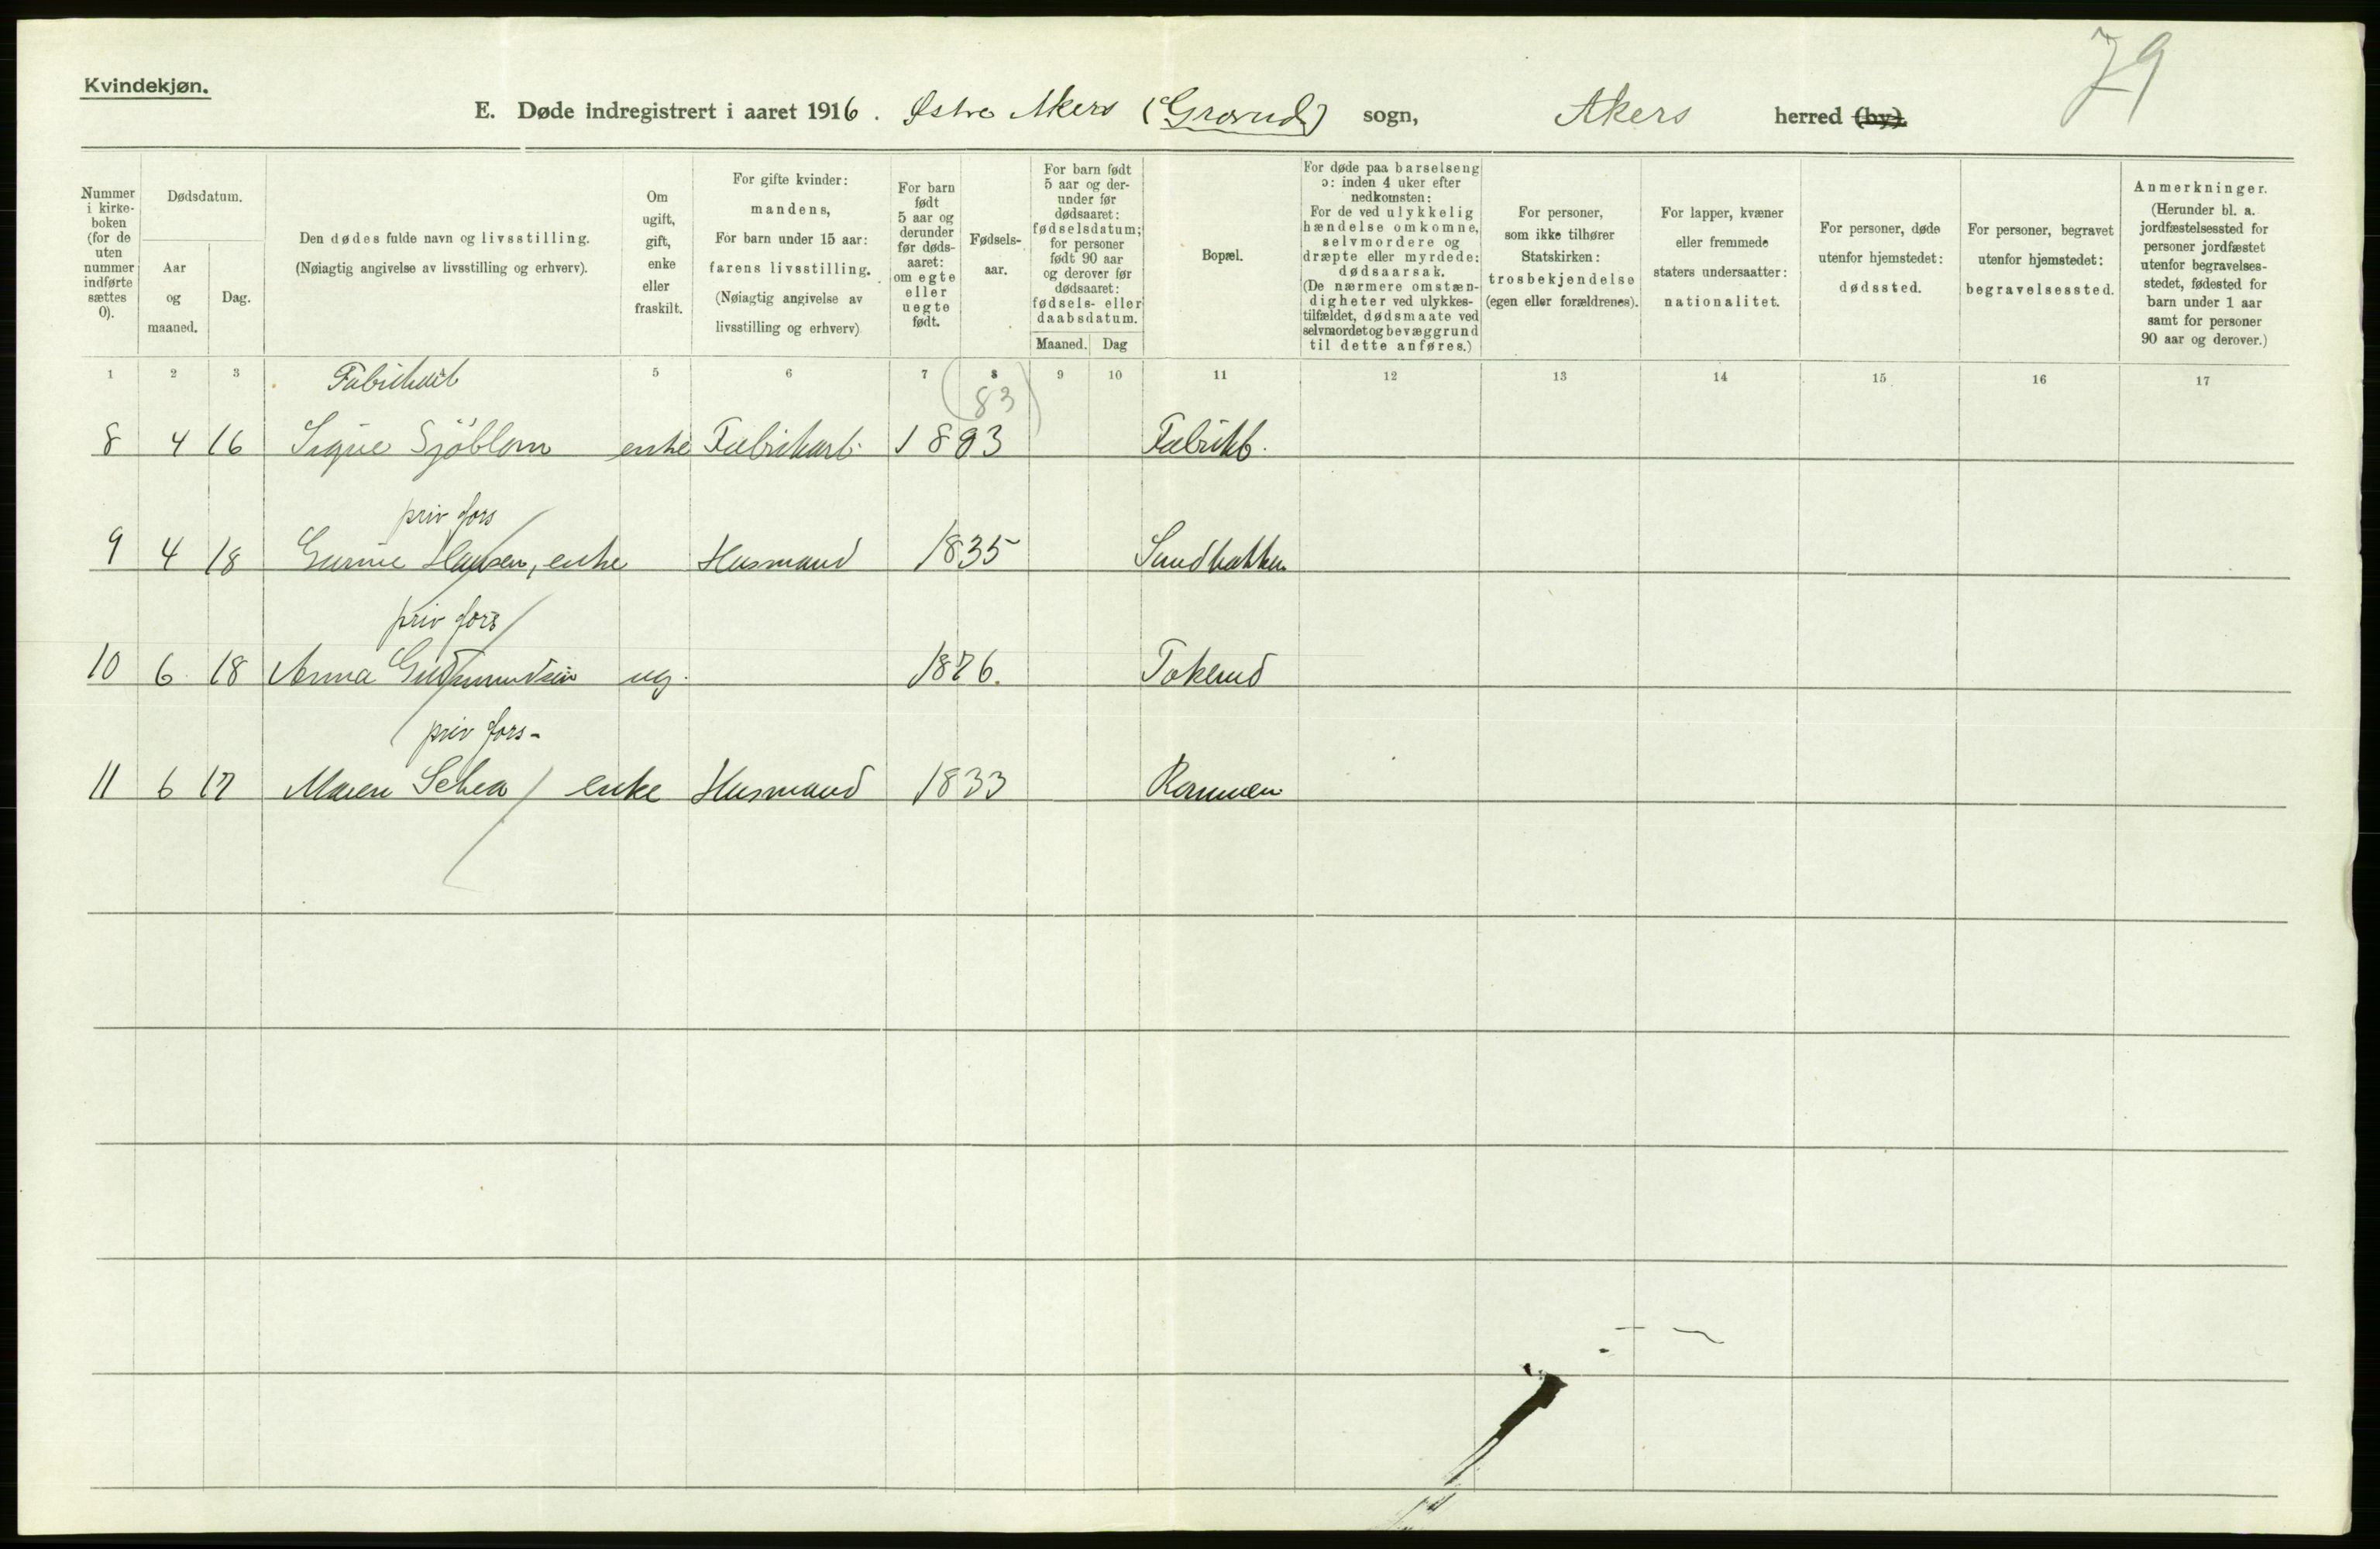 79
Kvindekjøn.
E. Døde indregistrert i aaret 1916. Østre Akers (Grorud) sogn, Akers herred (by).
Nummer i kirkeboken (for de uten nummer indførte sættes 0).
Dødsdatum.
Aar og maaned.
Dag.
Den dødes fulde navn og livsstilling.
(Nøiagtig angivelse av livsstilling og erhverv).
Om ugift, gift, enke eller fraskilt.
For gifte kvinder: mandens,
For barn under 15 aar: farens livsstilling.
(Nøiagtig angivelse av livsstilling og erhverv)
For barn født 5 aar og derunder før dødsaaret: om egte eller uegte født.
Fødselsaar.
For barn født 5 aar og derunder før dødsaaret: fødselsdatum; for personer født 90 aar og derover før dødsaaret: fødsels- eller daabsdatum.
Maaned. Dag
Bopæl.
For døde paa barselseng ɔ: inden 4 uker efter nedkomsten:
For de ved ulykkelig hændelse omkomne, selvmordere og dræpte eller myrdede: dødsaarsak.
(De nærmere omstændigheter ved ulykkestilfældet, dødsmaate ved selvmordet og bevæggrund til dette anføres.)
For personer, som ikke tilhører Statskirken: trosbekjendelse (egen eller forældrenes).
For lapper, kvæner eller fremmede staters undersaatter: nationalitet.
For personer, døde utenfor hjemstedet: dødssted.
For personer, begravet utenfor hjemstedet: begravelsessted.
Anmerkninger.
(Herunder bl. a. jordfæstelsessted for personer jordfæstet utenfor begravelsesstedet, fødested for barn under 1 aar samt for personer 90 aar og derover.)
1 2 3 5 6 7 8 9 10 11 12 13 14 15 16 17
Fabrikarb
(83)
8 4 16 Signe Sjöblom enke Fabrikarb. 1883 Fabrikb.
priv fors
9 4 18 Gurine Hansen, enke Husmand 1835 Sandbakken
priv fors
10 6 18 Anna Gudmundsen ug. 1876. Tokerud
priv fors-
11 6 17 Maren Schea enke Husmand 1833 Rommen